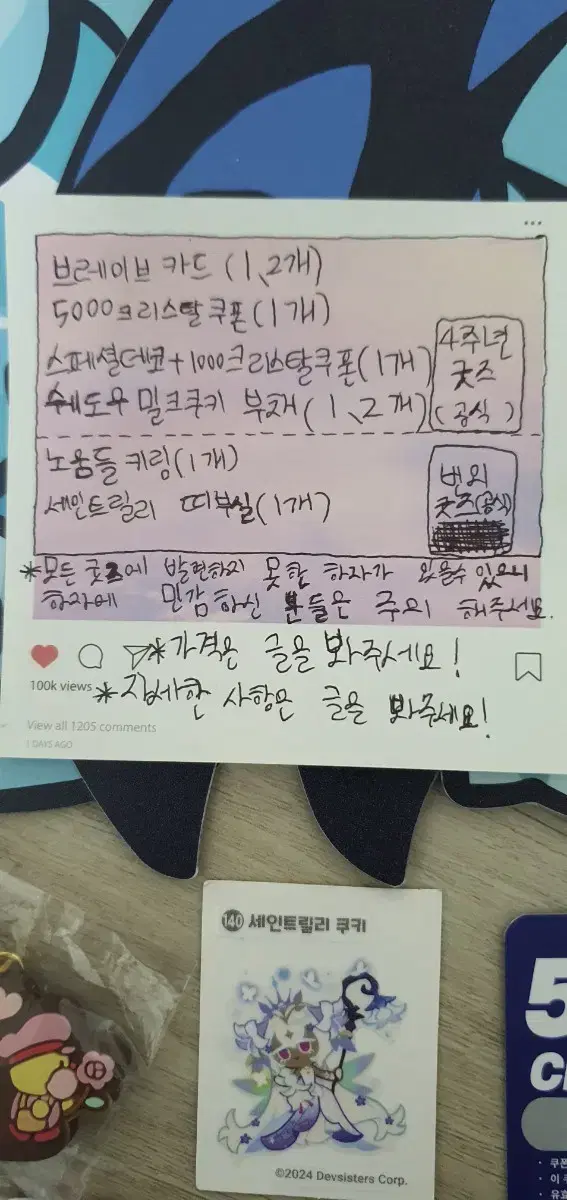 브레이브 카드 (1, 2개)
5000크리스탈쿠폰(1개)
스페셜데코+1000크리스탈쿠폰(1개)
쉐도우 밀크쿠키 부채(1, 2개)
4주년
굿즈
(공식)
노움들 키링(1개)
세인트릴리 띠부실(1개)
번외
굿즈(공식)
*모든 굿즈에 발견하지 못한 하자가 있을수 있으니
하자에 민감하신 분들은 주의 해주세요.
*가격은 글을 봐주세요!
100k views
*자세한 사항은 글을 봐주세요!
View all 1205 comments
1 DAYS AGO
140 세인트릴리 쿠키
©2024 Devsisters Corp.
5
C
· 쿠폰
· 이
유